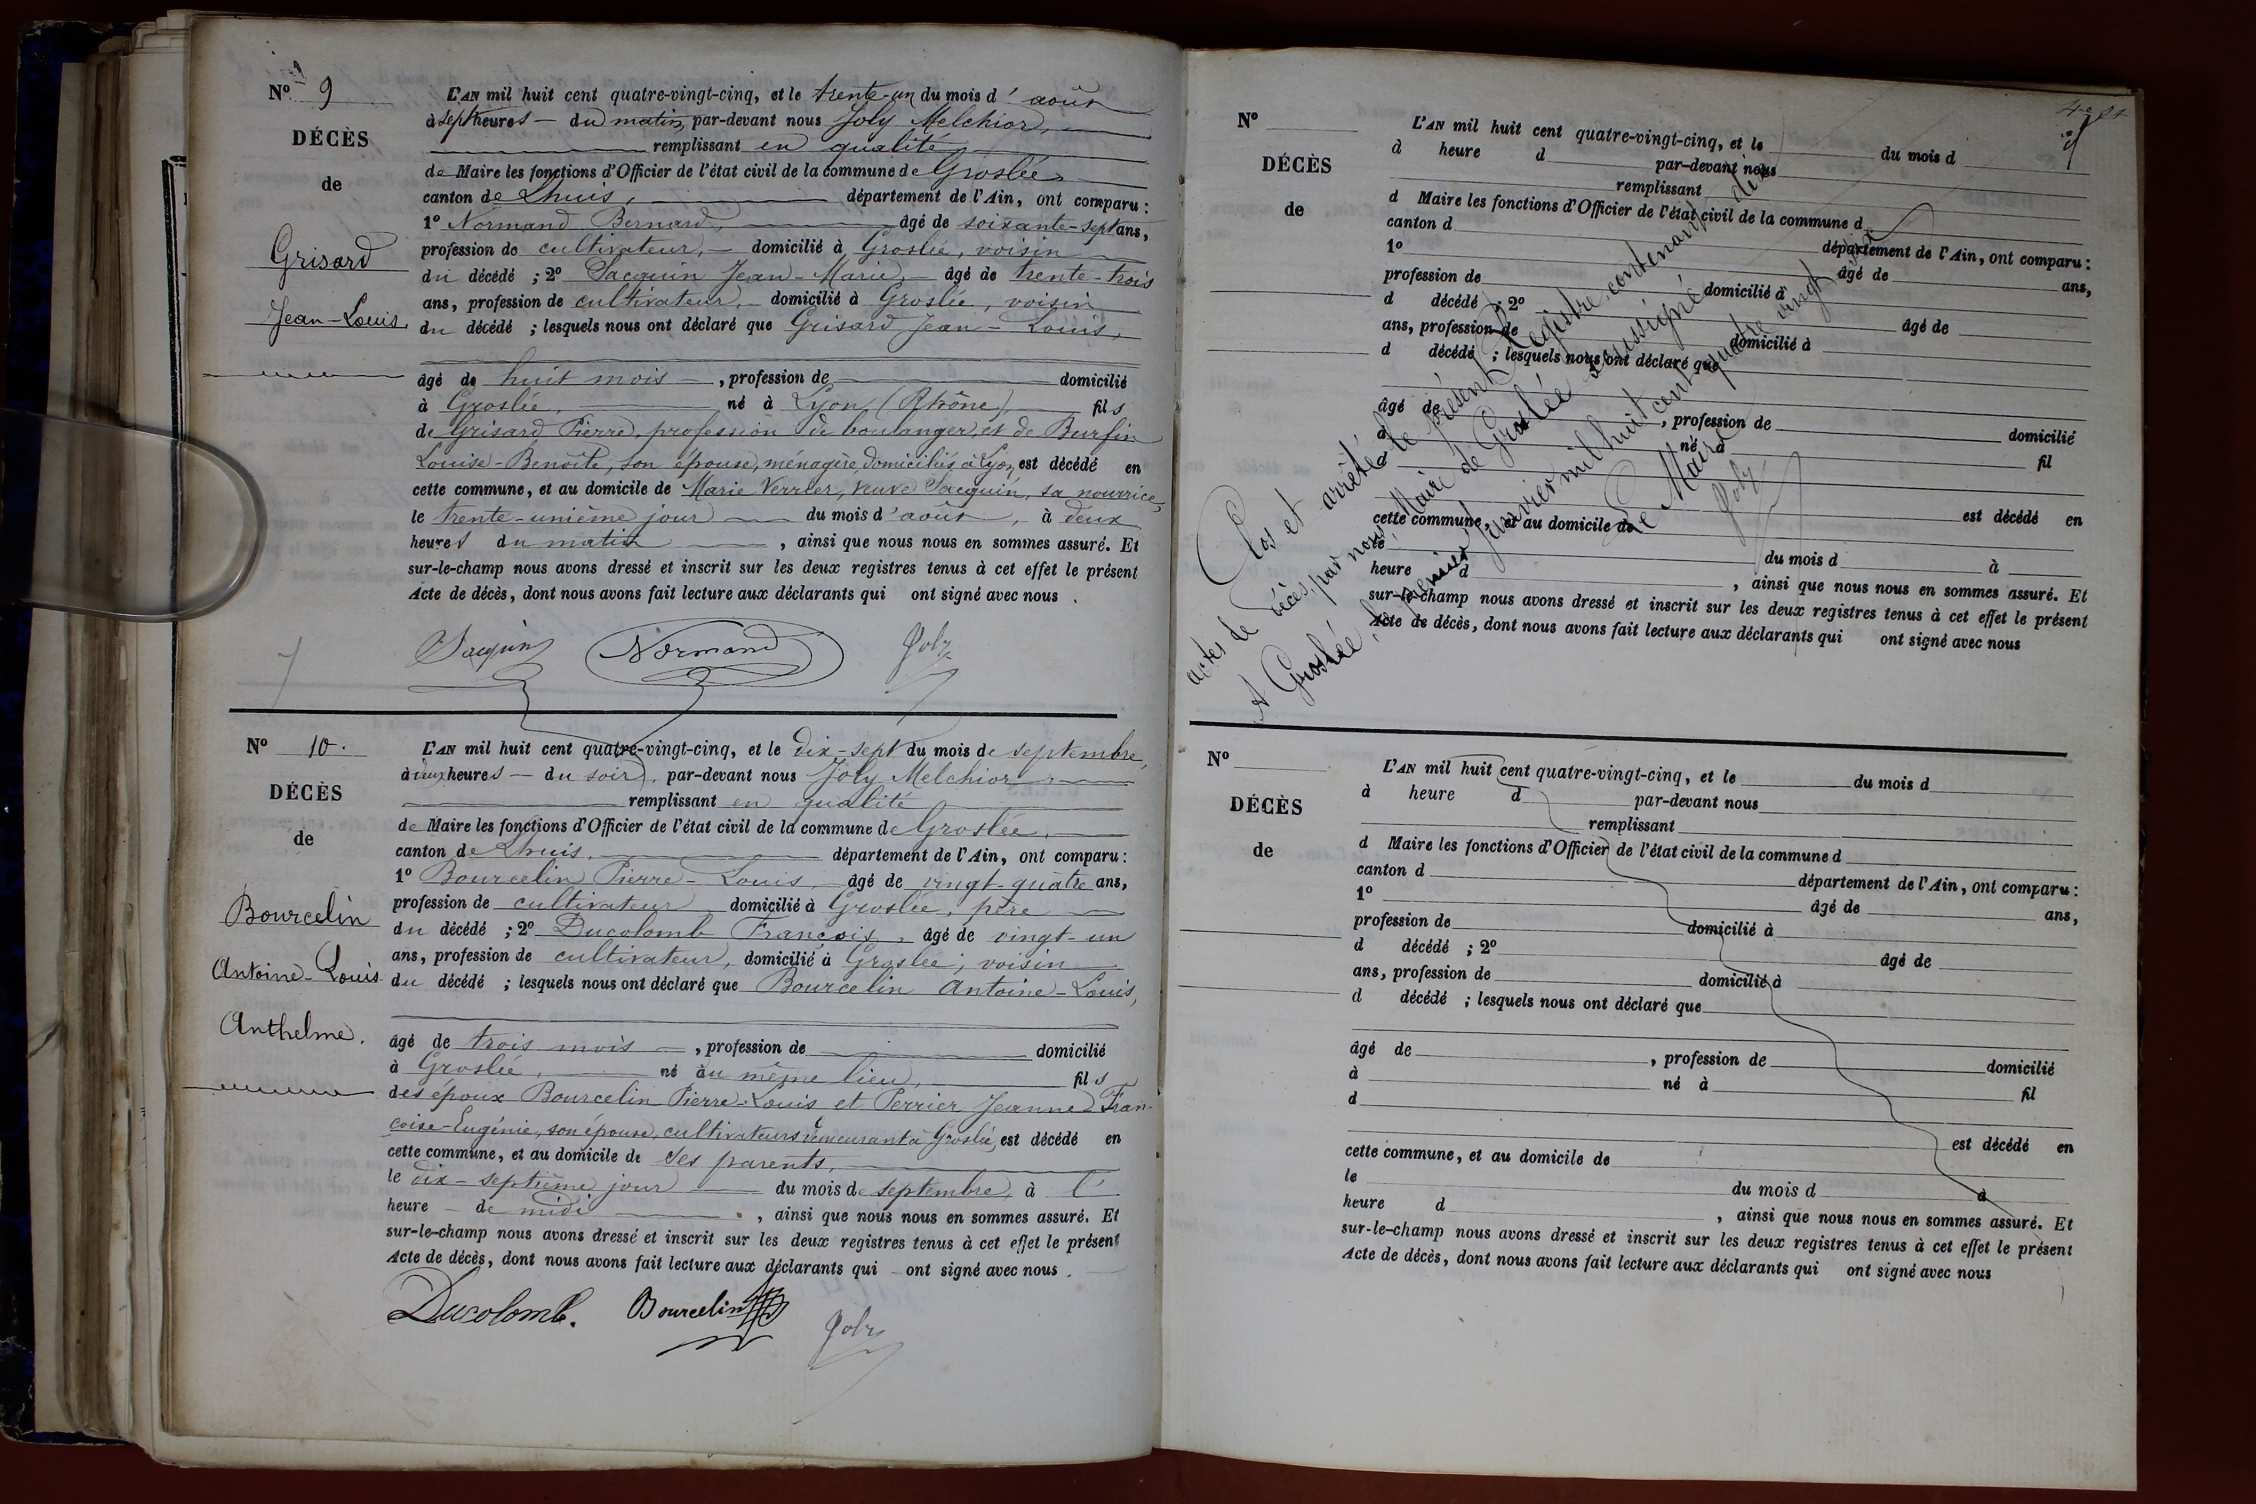 Nº 9
DÉCÈS
de
Grisard
Jean-Louis
L'AN mil huit cent quatre-vingt-cinq, et le trente-un du mois d'août
à sept heures du matin, par-devant nous Joly Melchior,
remplissant en qualité
de Maire les fonctions d'Officier de l'état civil de la commune de Groslée
canton de Lhuis, département de l'Ain, ont comparu :
1º Normand Bernard, âgé de soixante-sept ans,
profession de cultivateur, domicilié à Groslée, voisin
du décédé ; 2º Jacquin Jean-Marie, âgé de trente-trois
ans, profession de cultivateur, domicilié à Groslée, voisin
du décédé ; lesquels nous ont déclaré que Grisard Jean-Louis,
âgé de huit mois, profession de domicilié
à Groslée, né à Lyon (Rhône), fils
de Grisard Pierre, profession de boulanger, et de Burfin
Louise-Benoîte, son épouse, ménagère, domiciliés à Lyon, est décédé en
cette commune, et au domicile de Marie Verrier, veuve Jacquin, sa nourrice,
le trente-unième jour du mois d'août, à deux
heures du matin, ainsi que nous nous en sommes assuré. Et
sur-le-champ nous avons dressé et inscrit sur les deux registres tenus à cet effet le présent
Acte de décès, dont nous avons fait lecture aux déclarants qui ont signé avec nous.
Jacquin Normand Joly
Nº 10.
DÉCÈS
de
Bourcelin
Antoine-Louis
Anthelme.
L'AN mil huit cent quatre-vingt-cinq, et le dix-sept du mois de septembre,
à deux heures du soir, par-devant nous Joly Melchior
remplissant en qualité
de Maire les fonctions d'Officier de l'état civil de la commune de Groslée,
canton de Lhuis, département de l'Ain, ont comparu :
1º Bourcelin Pierre-Louis, âgé de vingt-quatre ans,
profession de cultivateur domicilié à Groslée, père
du décédé ; 2º Ducolomb François, âgé de vingt-un
ans, profession de cultivateur, domicilié à Groslée, voisin
du décédé ; lesquels nous ont déclaré que Bourcelin Antoine-Louis,
âgé de trois mois, profession de domicilié
à Groslée, né au même lieu, fils
des époux Bourcelin Pierre-Louis et Perrier Jeanne Fran-
çoise-Eugénie, son épouse, cultivateurs demeurant à Groslée, est décédé en
cette commune, et au domicile de ses parents,
le dix-septième jour du mois de septembre, à l'
heure de midi, ainsi que nous nous en sommes assuré. Et
sur-le-champ nous avons dressé et inscrit sur les deux registres tenus à cet effet le présent
Acte de décès, dont nous avons fait lecture aux déclarants qui ont signé avec nous.
Ducolomb. Bourcelin Joly
Nº
DÉCÈS
de
L'AN mil huit cent quatre-vingt-cinq, et le du mois d
à heure d par-devant nous
remplissant
d Maire les fonctions d'Officier de l'état civil de la commune d
canton d département de l'Ain, ont comparu :
1º âgé de ans,
profession de domicilié à
d décédé ; 2º âgé de
ans, profession de domicilié à
d décédé ; lesquels nous ont déclaré que
âgé de , profession de domicilié
à né à fil
d
est décédé en
cette commune, et au domicile de
le du mois d à
heure d , ainsi que nous nous en sommes assuré. Et
sur-le-champ nous avons dressé et inscrit sur les deux registres tenus à cet effet le présent
Acte de décès, dont nous avons fait lecture aux déclarants qui ont signé avec nous
Clos et arrêté le présent Registre contenant dix
actes de décès, par nous, Maire de Groslée soussigné
A Groslée, le premier janvier mil huit cent quatre vingt six
Le Maire
Joly
Nº
DÉCÈS
de
L'AN mil huit cent quatre-vingt-cinq, et le du mois d
à heure d par-devant nous
remplissant
d Maire les fonctions d'Officier de l'état civil de la commune d
canton d département de l'Ain, ont comparu :
1º âgé de ans,
profession de domicilié à
d décédé ; 2º âgé de
ans, profession de domicilié à
d décédé ; lesquels nous ont déclaré que
âgé de , profession de domicilié
à né à fil
d
est décédé en
cette commune, et au domicile de
le du mois d à
heure d , ainsi que nous nous en sommes assuré. Et
sur-le-champ nous avons dressé et inscrit sur les deux registres tenus à cet effet le présent
Acte de décès, dont nous avons fait lecture aux déclarants qui ont signé avec nous